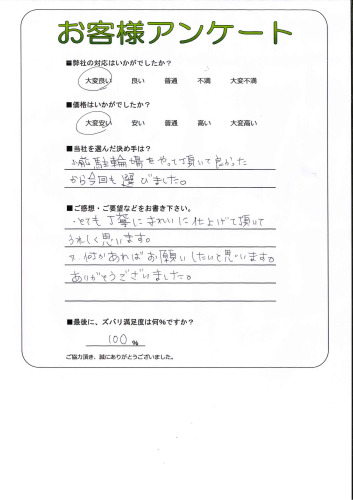 お客様アンケート
■弊社の対応はいかがでしたか？
大変良い 良い 普通 不満 大変不満
■価格はいかがでしたか？
大変安い 安い 普通 高い 大変高い
■当社を選んだ決め手は？
・前駐輪場をやって頂いて良かった
から今回も選びました。
■ご感想・ご要望などをお書き下さい。
・とても丁寧にきれいに仕上げて頂いて
うれしく思います。
又、何かあればお願いしたいと思います。
ありがとうございました。
■最後に、ズバリ満足度は何%ですか？
100 %
ご協力頂き、誠にありがとうございました。